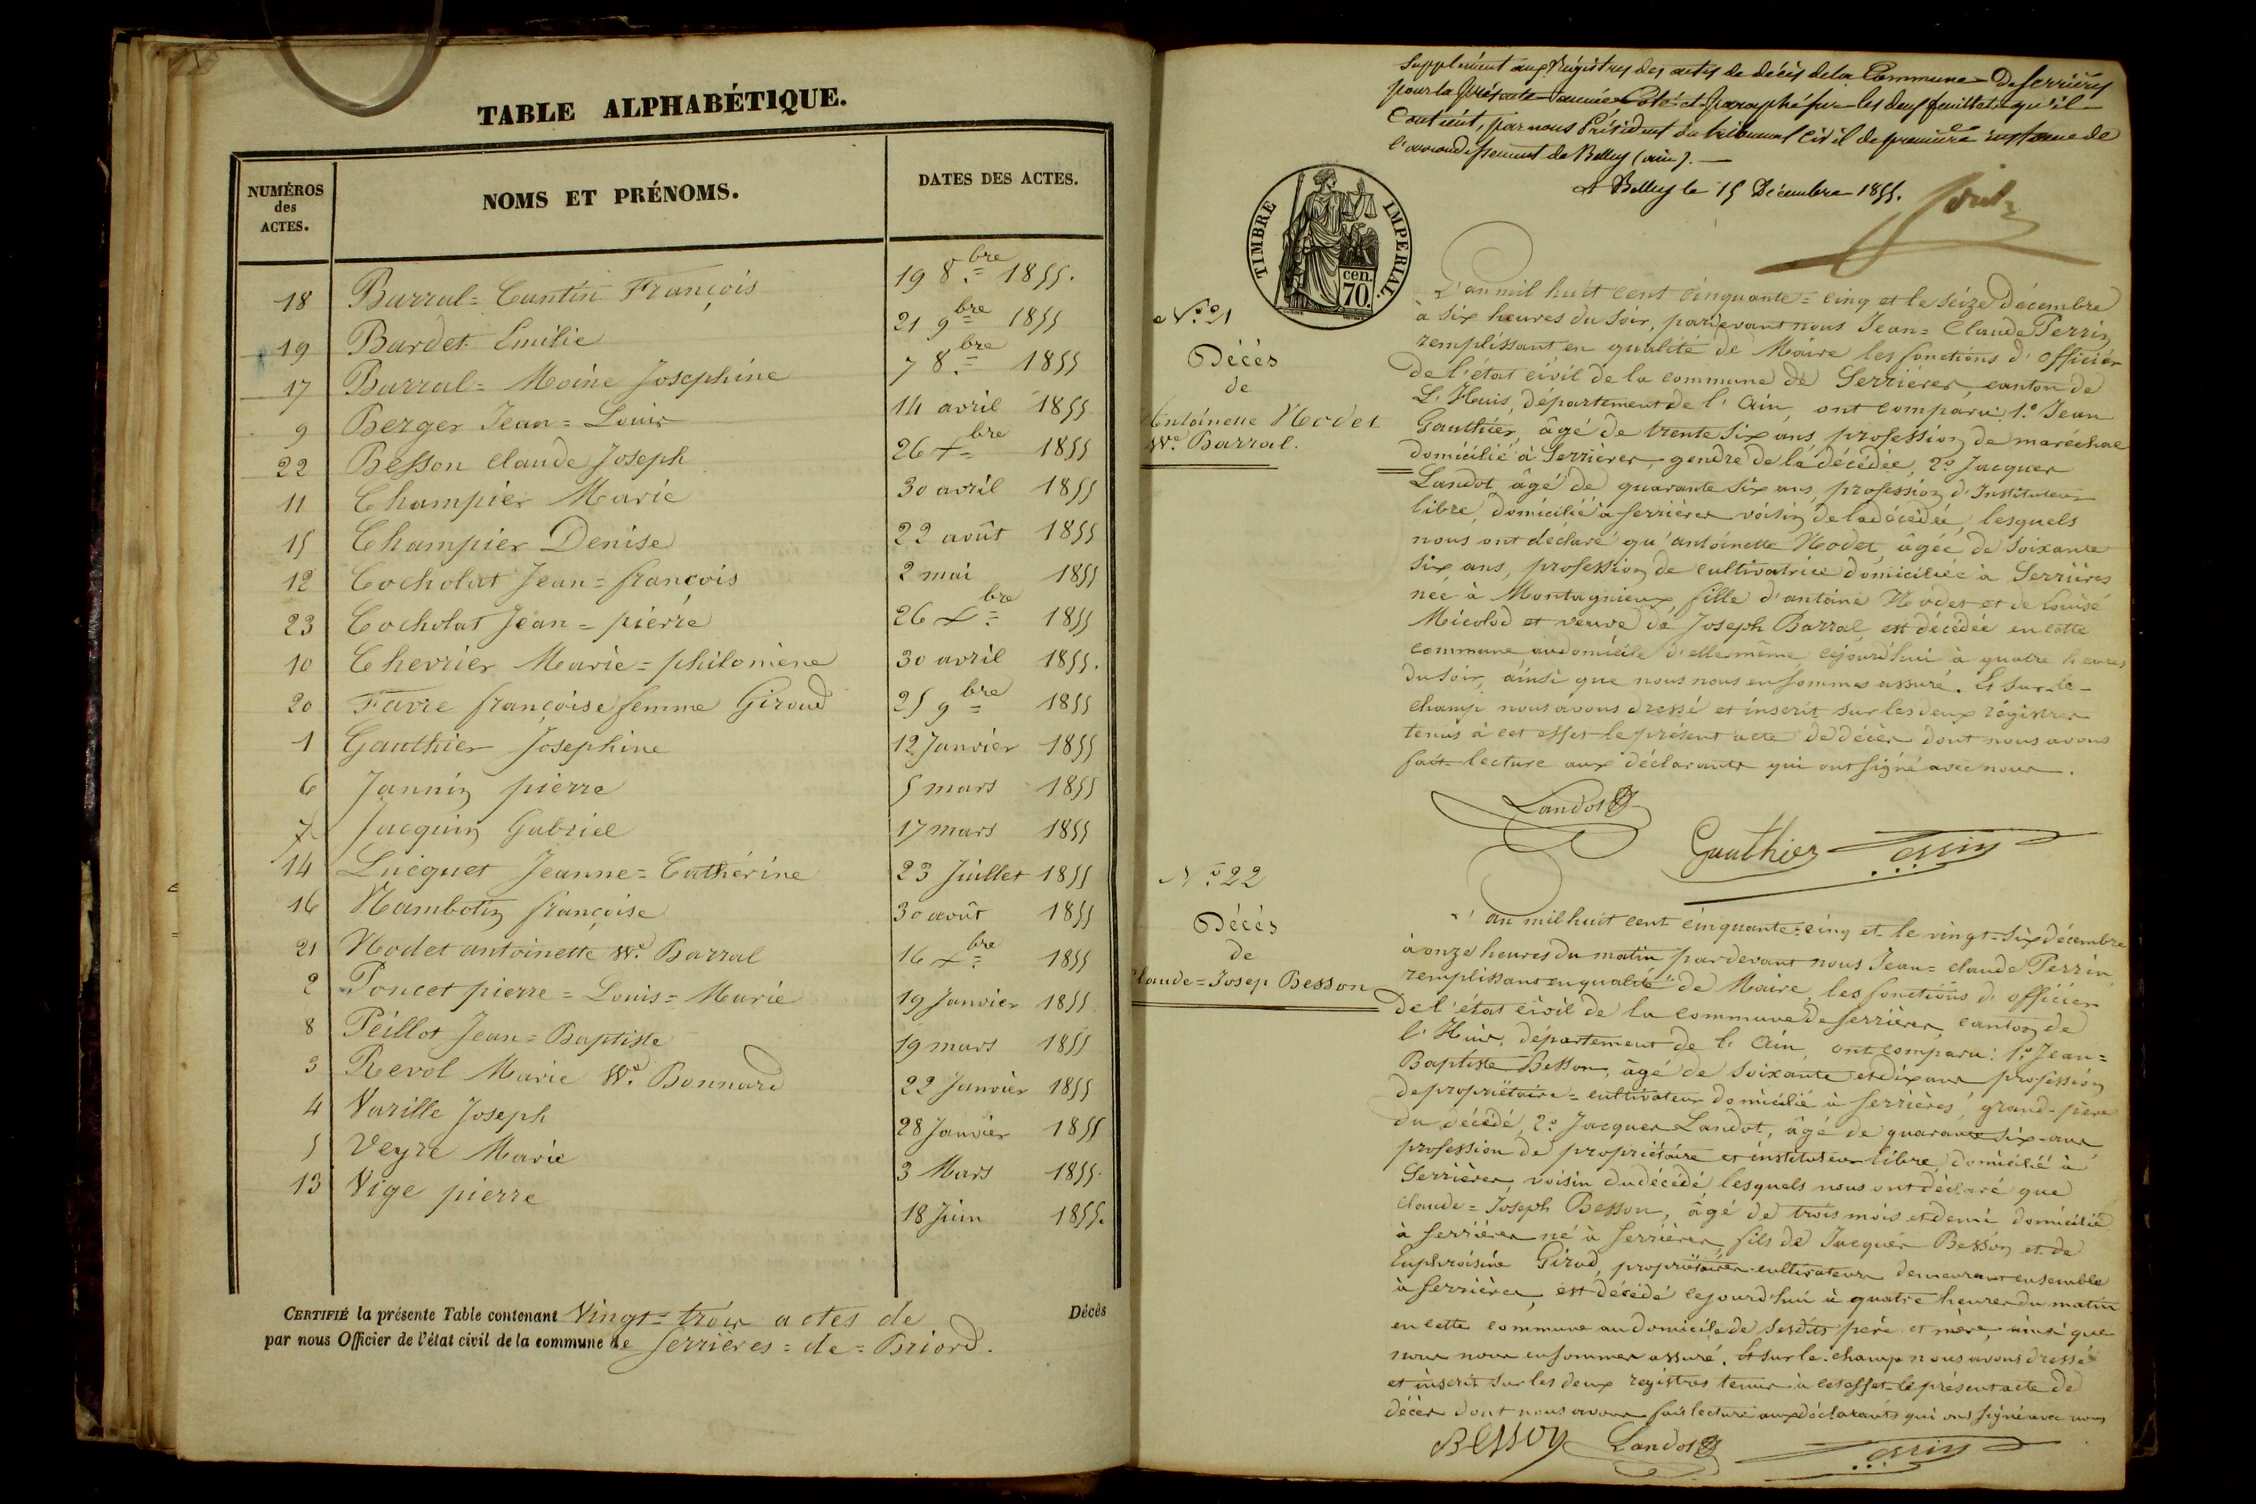 TABLE ALPHABÉTIQUE.
NUMÉROS des ACTES. NOMS ET PRÉNOMS. DATES DES ACTES.
18 Barral=Cantin François 19 8.bre 1855.
19 Bardet Emilie 21 9bre 1855
17 Barral=Moine Josephine 7 8.bre 1855
9 Berger Jean=Louis 14 avril 1855
22 Besson claude Joseph 26 Xbre 1855
11 Champier Marie 30 avril 1855
15 Champier Denise 22 août 1855
12 Cocholat Jean=françois 2 mai 1855
23 Cocholat Jean=pierre 26 Xbre 1855
10 Chevrier Marie=philomène 30 avril 1855.
20 Favre françoise femme Giroud 25 9bre 1855
1 Gauthier Josephine 12 Janvier 1855
6 Jannin pierre 5 mars 1855
7 Jacquin Gabriel 17 mars 1855
14 Luequet Jeanne=Cathérine 23 Juillet 1855
16 Nambotin françoise 30 août 1855
21 Nodet antoinette Ve. Barral 16 Xbre 1855
2 Poncet pierre=Louis=Marie 19 Janvier 1855
8 Peillot Jean=Baptiste 19 mars 1855
3 Revol Marie Ve. Bonnard 22 Janvier 1855
4 Varille Joseph 28 Janvier 1855
5 Veyre Marie 3 Mars 1855.
13 Vige pierre 18 Juin 1855.
CERTIFIÉ la présente Table contenant Vingt=trois actes de Décès
par nous Officier de l'état civil de la commune de Serrières=de=Briord.
Supplément aux Régistres des actes de décès de la Commune De Serrières
pour la présente année Coté et paraphé sur les deux feuillets qu'il
Contient, par nous Président du tribunal Civil de première instance de
l'arrondissement de Belley (ain).
A Belley le 15 Décembre 1855.
TIMBRE IMPERIAL.
cen.
70.
N.° 21
Décès
de
Antoinette Nodet
Ve. Barral.
L'an mil huit cent cinquante=cinq et le seize décembre
à six heures du soir, pardevant nous Jean=Claude Perrin
remplissant en qualité de Maire les fonctions d'officier
de l'état civil de la commune de Serrières, canton de
L'Huis, département de l'Ain, ont comparu: 1.° Jean
Gauthier, âgé de trente six ans, profession de maréchal
domicilié à Serrières, gendre de la décédée, 2.° Jacques
Landot, âgé de quarante six ans, profession d'Instituteur
libre, domicilié à serrières voisin de la décédée, lesquels
nous ont déclaré qu'antoinette Nodet, âgée de soixante
six ans, profession de cultivatrice domiciliée à Serrières
née à Montagnieux fille d'antoine Nodet et de Louise
Micolod et veuve de Joseph Barral, est décédée en cette
commune, au domicile d'elle même, cejourd'hui à quatre heures
du soir, ainsi que nous nous en sommes assuré. Et sur le-
champ nous avons dressé et inscrit sur les deux régistres
tenus à cet effet le présent acte de décès dont nous avons
fait lecture aux déclarants qui ont signé avec nous.
Landot
Gauthier Perrin
N.° 22
Décès
de
Claude=Josep Besson
L'an mil huit cent cinquante=cinq et le vingt=six décembre
à onze heures du matin pardevant nous Jean=claude Perrin
remplissant en qualité de Maire, les fonctions d'officier
de l'état civil de la commune de serrières, canton de
l'Huis, département de l'Ain, ont comparu: 1.° Jean=
Baptiste Besson, âgé de soixante et dix ans profession
de propriétaire=cultivateur domicilié à serrières, grand-père
du décédé, 2.° Jacques Landot, âgé de quarante six ans
profession de propriétaire et instituteur libre, domicilié à
Serrières, voisin du décédé lesquels nous ont déclaré que
claude=Joseph Besson, âgé de trois mois et demi domicilié
à serrières né à serrières, fils de Jacques Besson et de
Euphroisine Girod, propriétaires-cultivateurs demeurant ensemble
à serrières, est décédé cejourd'hui à quatre heures du matin
en cette commune au domicile de sesdits père et mère, ainsi que
nous nous en sommes assuré. Et sur le-champ nous avons dressé
et inscrit sur les deux registres tenus à cet effet le présent acte de
décès dont nous avons fait lecture aux déclarants qui ont signé avec nous
Besson Landot Perrin